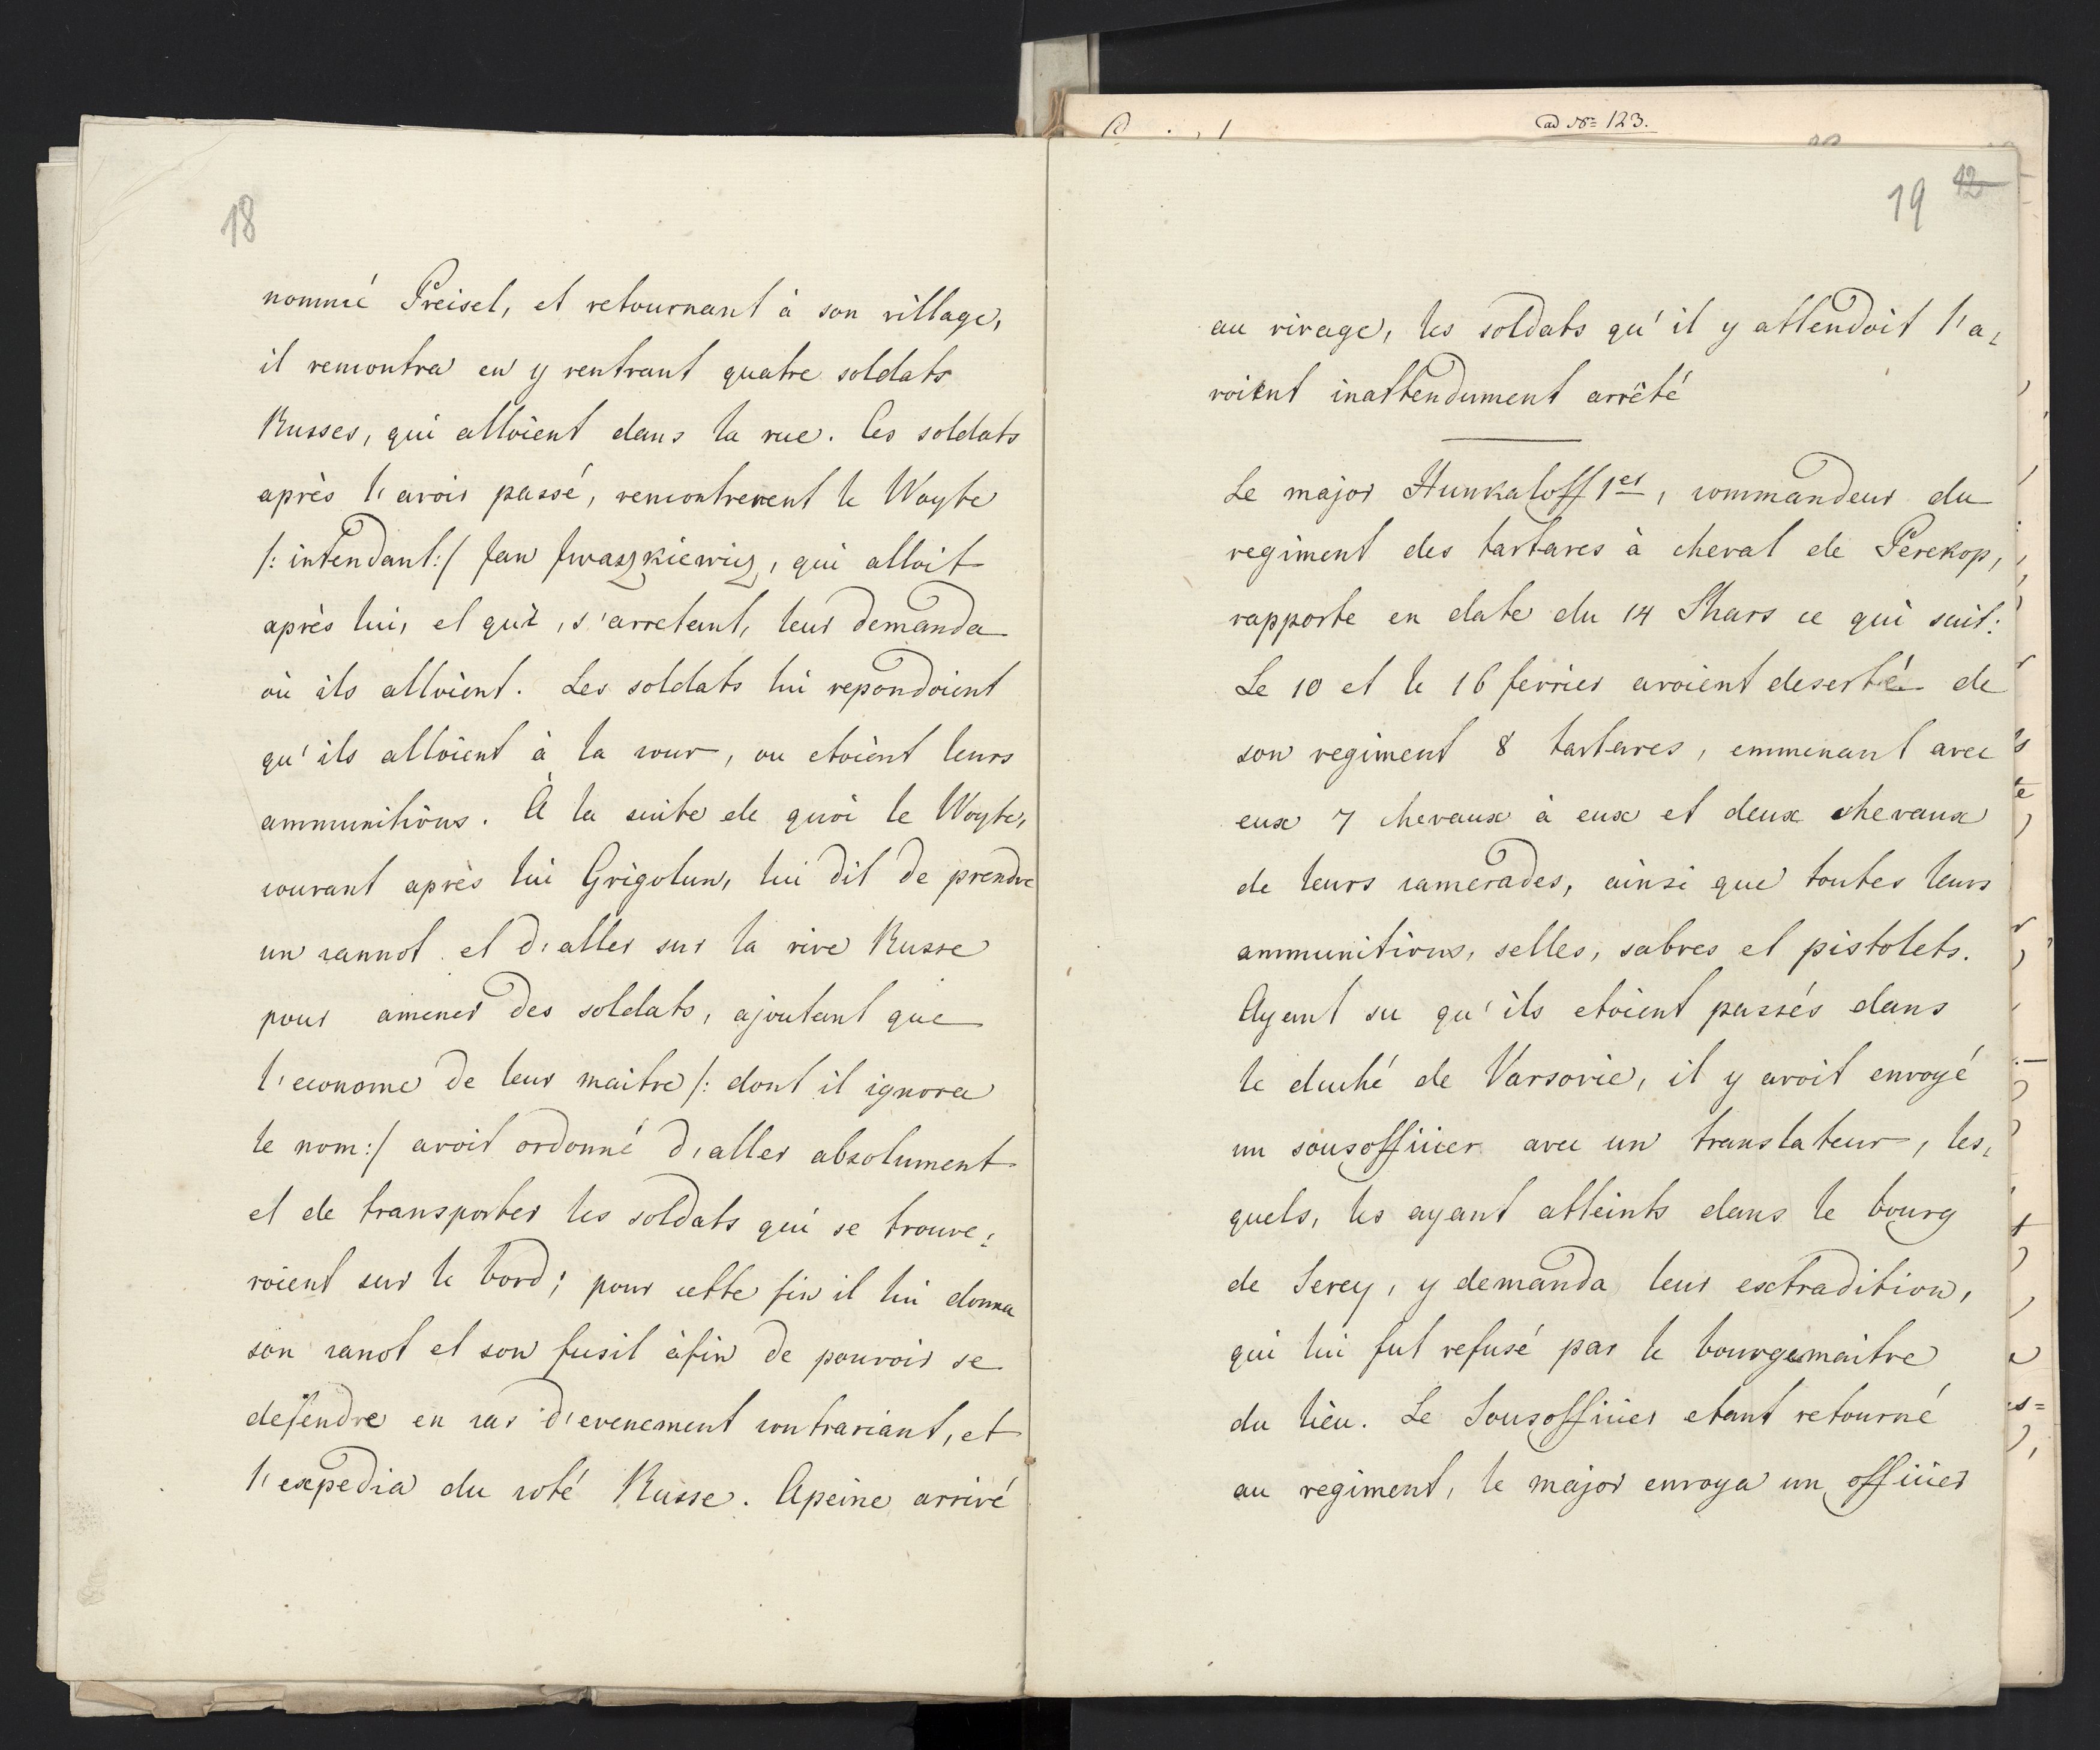 18
nommé Preisel, et retournant à son village,
il rencontra en y rentrant quatre soldats
Russes, qui alloient dans la rue. Ces soldats
après l'avoir passé, rencontrerent le Woyte
/: intendant:/ Jan Jwaszkiewicz, qui alloit
après lui, et qui, s'arretant, leur demanda
où ils alloient. Les soldats lui repondoient
qu'ils alloient à la cour, ou etoient leurs
ammunitions. A la suite de quoi le Woyte,
courant après lui Grigolun, lui dit de prendre
un cannot et d'aller sur la rive Russe
pour amener des soldats, ajoutant que
l'econome de leur maitre /: dont il ignora
le nom:/ avoit ordonné d'aller absolument
et de transporter les soldats qui se trouve:
roient sur le bord; pour cette fin il lui donna
son canot et son fusil àfin de pouvoir se
defendre en cas d'evenement contrariant, et
l'expedia du coté Russe. Apeine arrivé
ad No 123.
19 12
au rivage, les soldats qu'il y attendoit l'a:
voient inattendument arrêté
Le major Hunkaloff 1er, commandeur du
regiment des tartares à cheval de Perekop,
rapporte en date du 14 Mars ce qui suit:
Le 10 et le 16 fevrier avoient deserté de
son regiment 8 tartares, emmenant avec
eux 7 chevaux à eux et deux chevaux
de leurs camerades, ainsi que toutes leurs
ammunitions, selles, sabres et pistolets.
Ayant su qu'ils etoient passés dans
le duché de Varsovie, il y avoit envoyé
un sousofficier avec un translateur, les:
quels, les ayant atteints dans le bourg
de Serey, y demanda leur extradition,
qui lui fut refusé par le bourgemaitre
du lieu. Le Sousofficier etant retourné
au regiment, le major envoya un officier